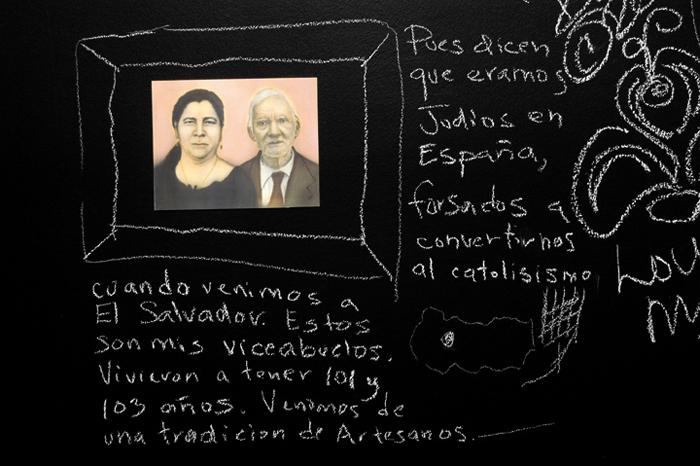 Pues dicen
que eramos
Judios en
España,
forsados a
convertirnos
al catolisismo
cuando venimos a
El Salvador. Estos
son mis viceabuelos.
Vivieron a tener 101 y
103 años. Venimos de
una tradicion de Artesanos.